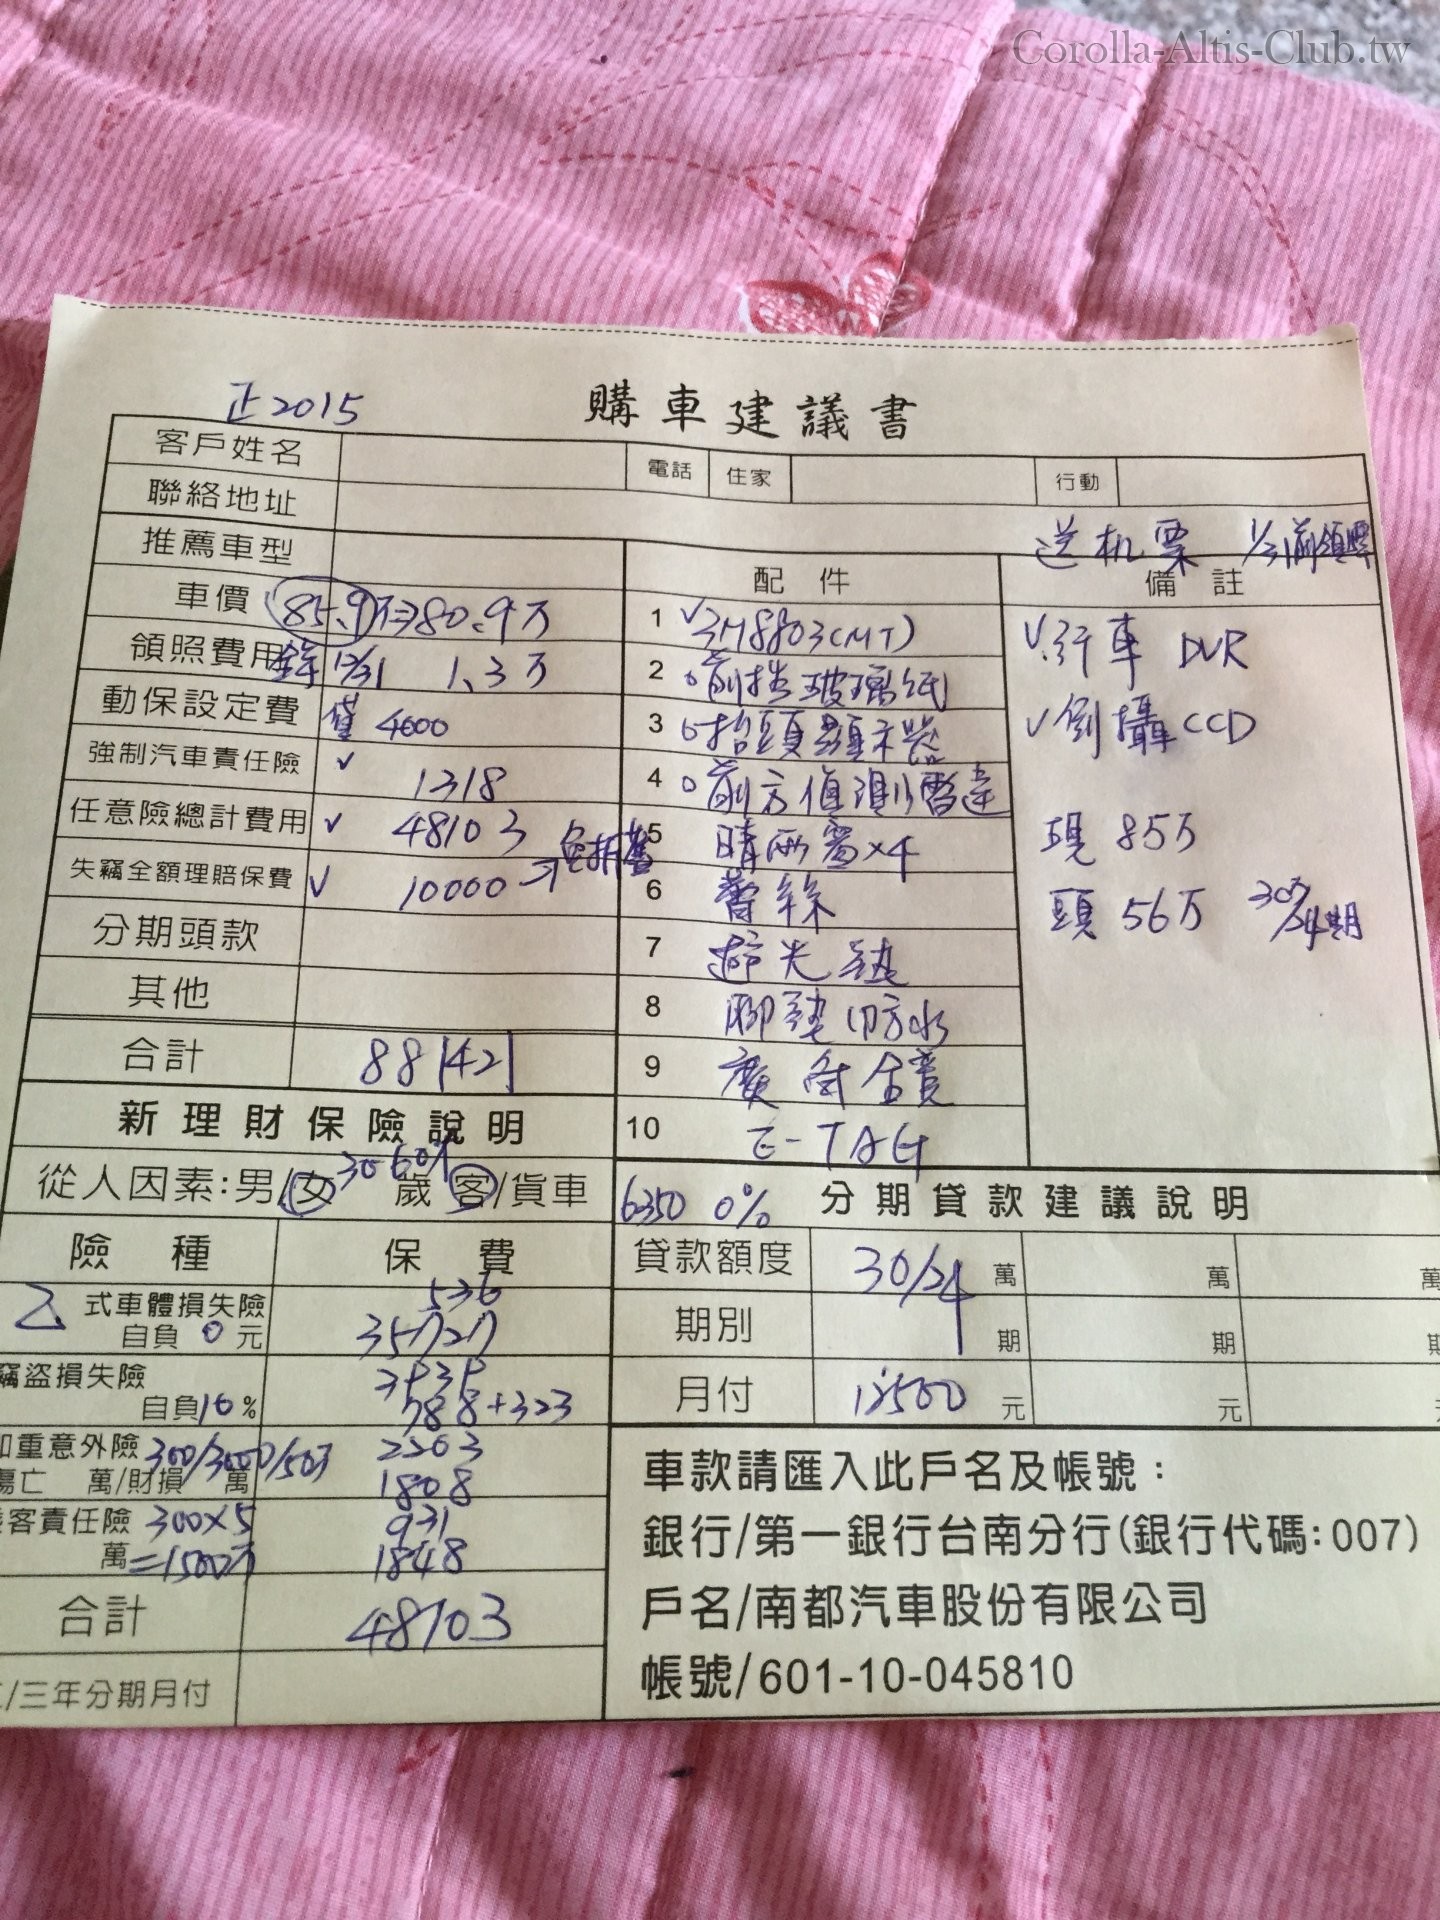 Corolla-Altis-Club.tw
正2015
購車建議書
客戶姓名
電話 住家 行動
聯絡地址
送机票 1/31前領牌
推薦車型
配件 備註
車價 85.9万⇒80.9万
領照費用 12/31 1.3万
動保設定費 4000
強制汽車責任險 ✓ 1318
任意險總計費用 ✓ 48103
失竊全額理賠保費 ✓ 10000 → 免折舊
分期頭款
其他
合計 88142
1 ✓3M8803(MT)
2 前擋玻璃紙
3 抬頭顯示器
4 前方偵測雷達
5 晴雨窗×4
6
7 避光墊
8 腳墊 防水
9 廣角鏡
10 E-TAG
✓行車 DVR
✓倒攝CCD
現 85万
頭 56万 30万/24期
新理財保險說明
從人因素:男/女 30-60 歲 客/貨車
險種 保費
乙 式車體損失險 536
自負 0 元 35727
竊盜損失險 3535
自負10% 788+323
加重意外險 300/3000/50万 2503
傷亡 萬/財損 萬 1808
客責任險 300×5 931
萬=1500万 1848
合計 48103
/三年分期月付
6350 0% 分期貸款建議說明
貸款額度 30/24 萬 萬 萬
期別 期 期 期
月付 12500 元 元
車款請匯入此戶名及帳號：
銀行/第一銀行台南分行(銀行代碼:007)
戶名/南都汽車股份有限公司
帳號/601-10-045810